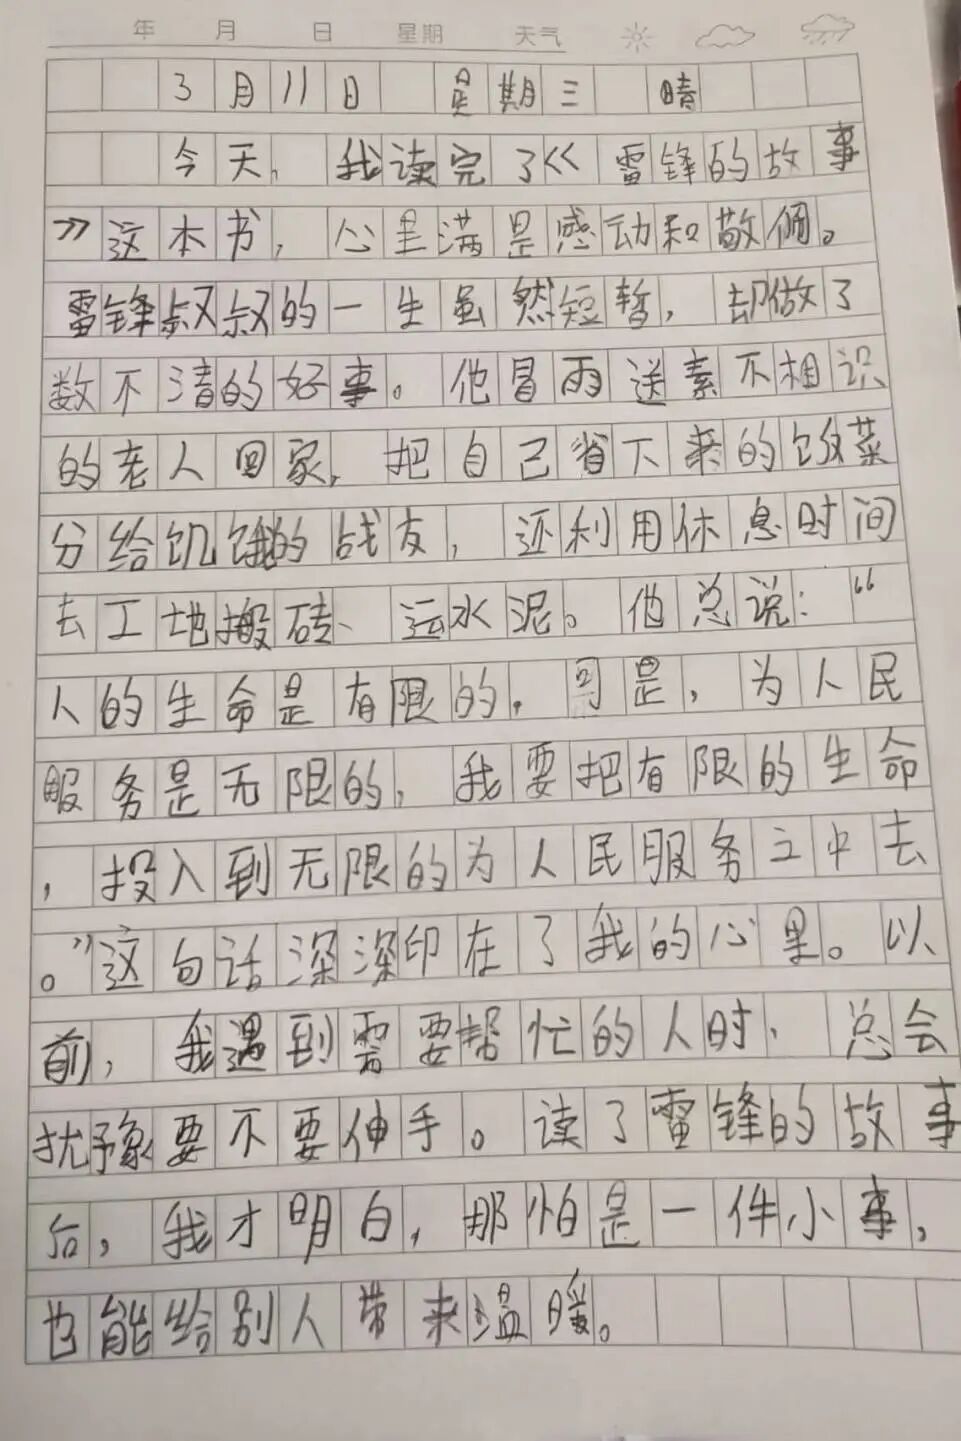 年 月 日 星期 天气
3月11日 星期三 晴
今天，我读完了《雷锋的故事
》这本书，心里满是感动和敬佩。
雷锋叔叔的一生虽然短暂，却做了
数不清的好事。他冒雨送素不相识
的老人回家，把自己省下来的饭菜
分给饥饿的战友，还利用休息时间
去工地搬砖、运水泥。他总说：“
人的生命是有限的，可是，为人民
服务是无限的，我要把有限的生命
，投入到无限的为人民服务之中去
。”这句话深深印在了我的心里。以
前，我遇到需要帮忙的人时，总会
扰豫要不要伸手。读了雷锋的故事
后，我才明白，那怕是一件小事，
也能给别人带来温暖。